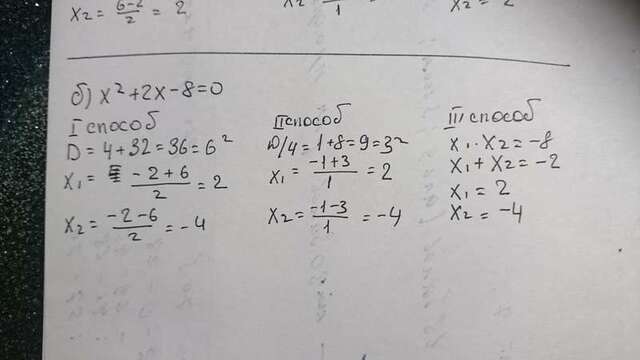 x₂ = (6-2)/2 = 2
б) x² + 2x - 8 = 0
I способ
D = 4 + 32 = 36 = 6²
x₁ = (-2+6)/2 = 2
x₂ = (-2-6)/2 = -4
II способ
D/4 = 1 + 8 = 9 = 3²
x₁ = (-1+3)/1 = 2
x₂ = (-1-3)/1 = -4
III способ
x₁ · x₂ = -8
x₁ + x₂ = -2
x₁ = 2
x₂ = -4